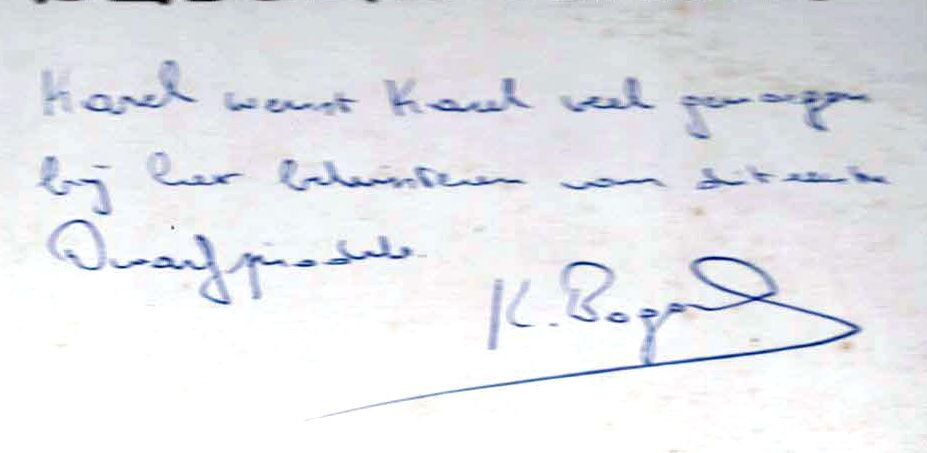 Karel wenst Karel veel genoegen
bij het beluisteren van dit eerste
Dwarfprodukt
K. Bogard